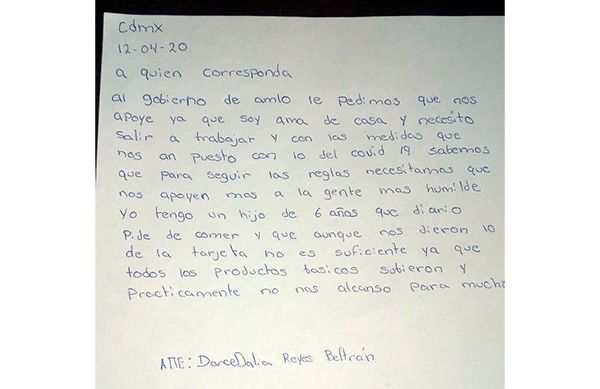 Cdmx
12-04-20
a quien corresponda
al gobierno de amlo le pedimos que nos
apoye ya que soy ama de casa y necesito
salir a trabajar y con las medidas que
nos an puesto con lo del covid 19 sabemos
que para seguir las reglas necesitamos que
nos apoyen mas a la gente mas humilde
Yo tengo un hijo de 6 años que diario
Pide de comer y que aunque nos dieron lo
de la tarjeta no es suficiente ya que
todos los productos basicos subieron y
Practicamente no nos alcanso para mucho
ATTE: DarceDalia Reyes Beltrán